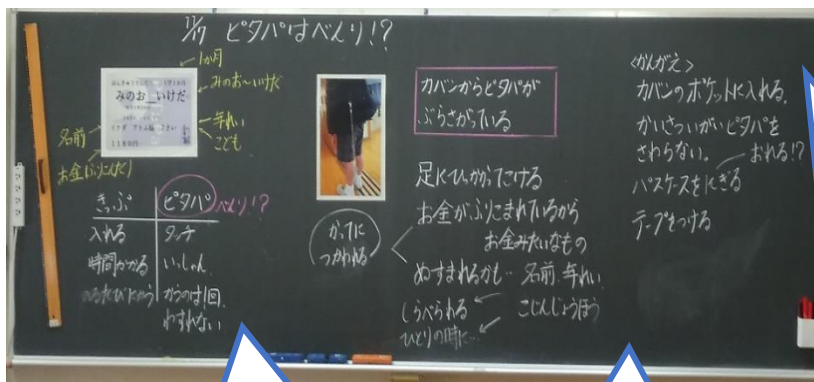 11/17 ピタパはべんり!?
1か月
みのお〜いけだ
みのお いけだ
年れい
こども
名前
1180円
きっぷ ピタパ べんり!?
入れる タッチ
時間かかる いっしゅん
かうのは1回
わすれない
かってに
つかわれる
カバンからピタパが
ぶらさがっている
足にひっかかってこける
お金がふりこまれているから
お金みたいなもの
ぬすまれるかも… 名前、年れい
しらべられる こじんじょうほう
ひとりの時に…
<かんがえ>
カバンのポケットに入れる。
かいさついがいピタパを
さわらない。 おれる!?
パスケースをにぎる
テープをつける